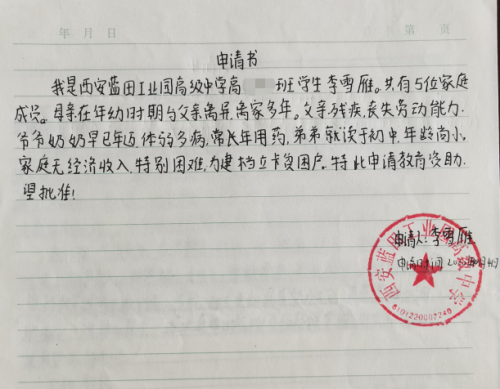 年 月 日
第 页
申请书
我是西安蓝田工业园高级中学高 班学生李雪雁。共有5位家庭
成员。母亲在年幼时期与父亲离异,离家多年。父亲残疾,丧失劳动能力,
爷爷奶奶早已年迈,体弱多病,常长年用药,弟弟就读于初中,年龄尚小,
家庭无经济收入,特别困难,为建档立卡贫困户。特此申请教育资助.
望批准!
申请人:李雪雁
申请时间
西安蓝田工业园高级中学
6101220007240